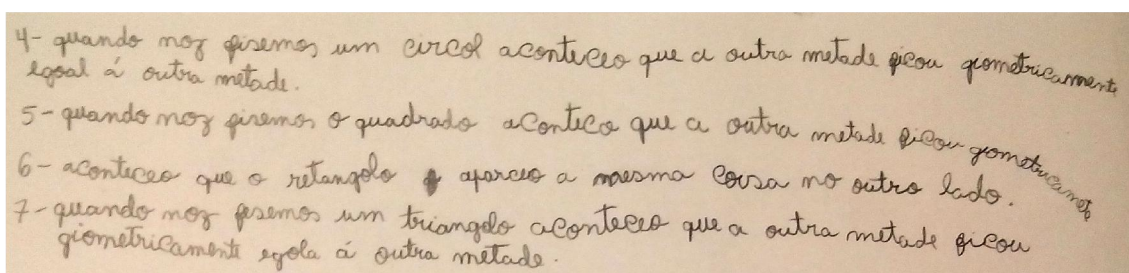 4- quando noz fisemos um circol aconteceo que a outra metade ficou giometricamente
egoal á outra metade.
5- quando noz fisemos o quadrado aconteco que a outra metade ficou giometricamete
6- aconteceo que o retangolo aparceo a mesma coisa no outro lado.
7- quando noz fesemos um triangolo aconteceo que a outra metade ficou
giometricamente egola á outra metade.